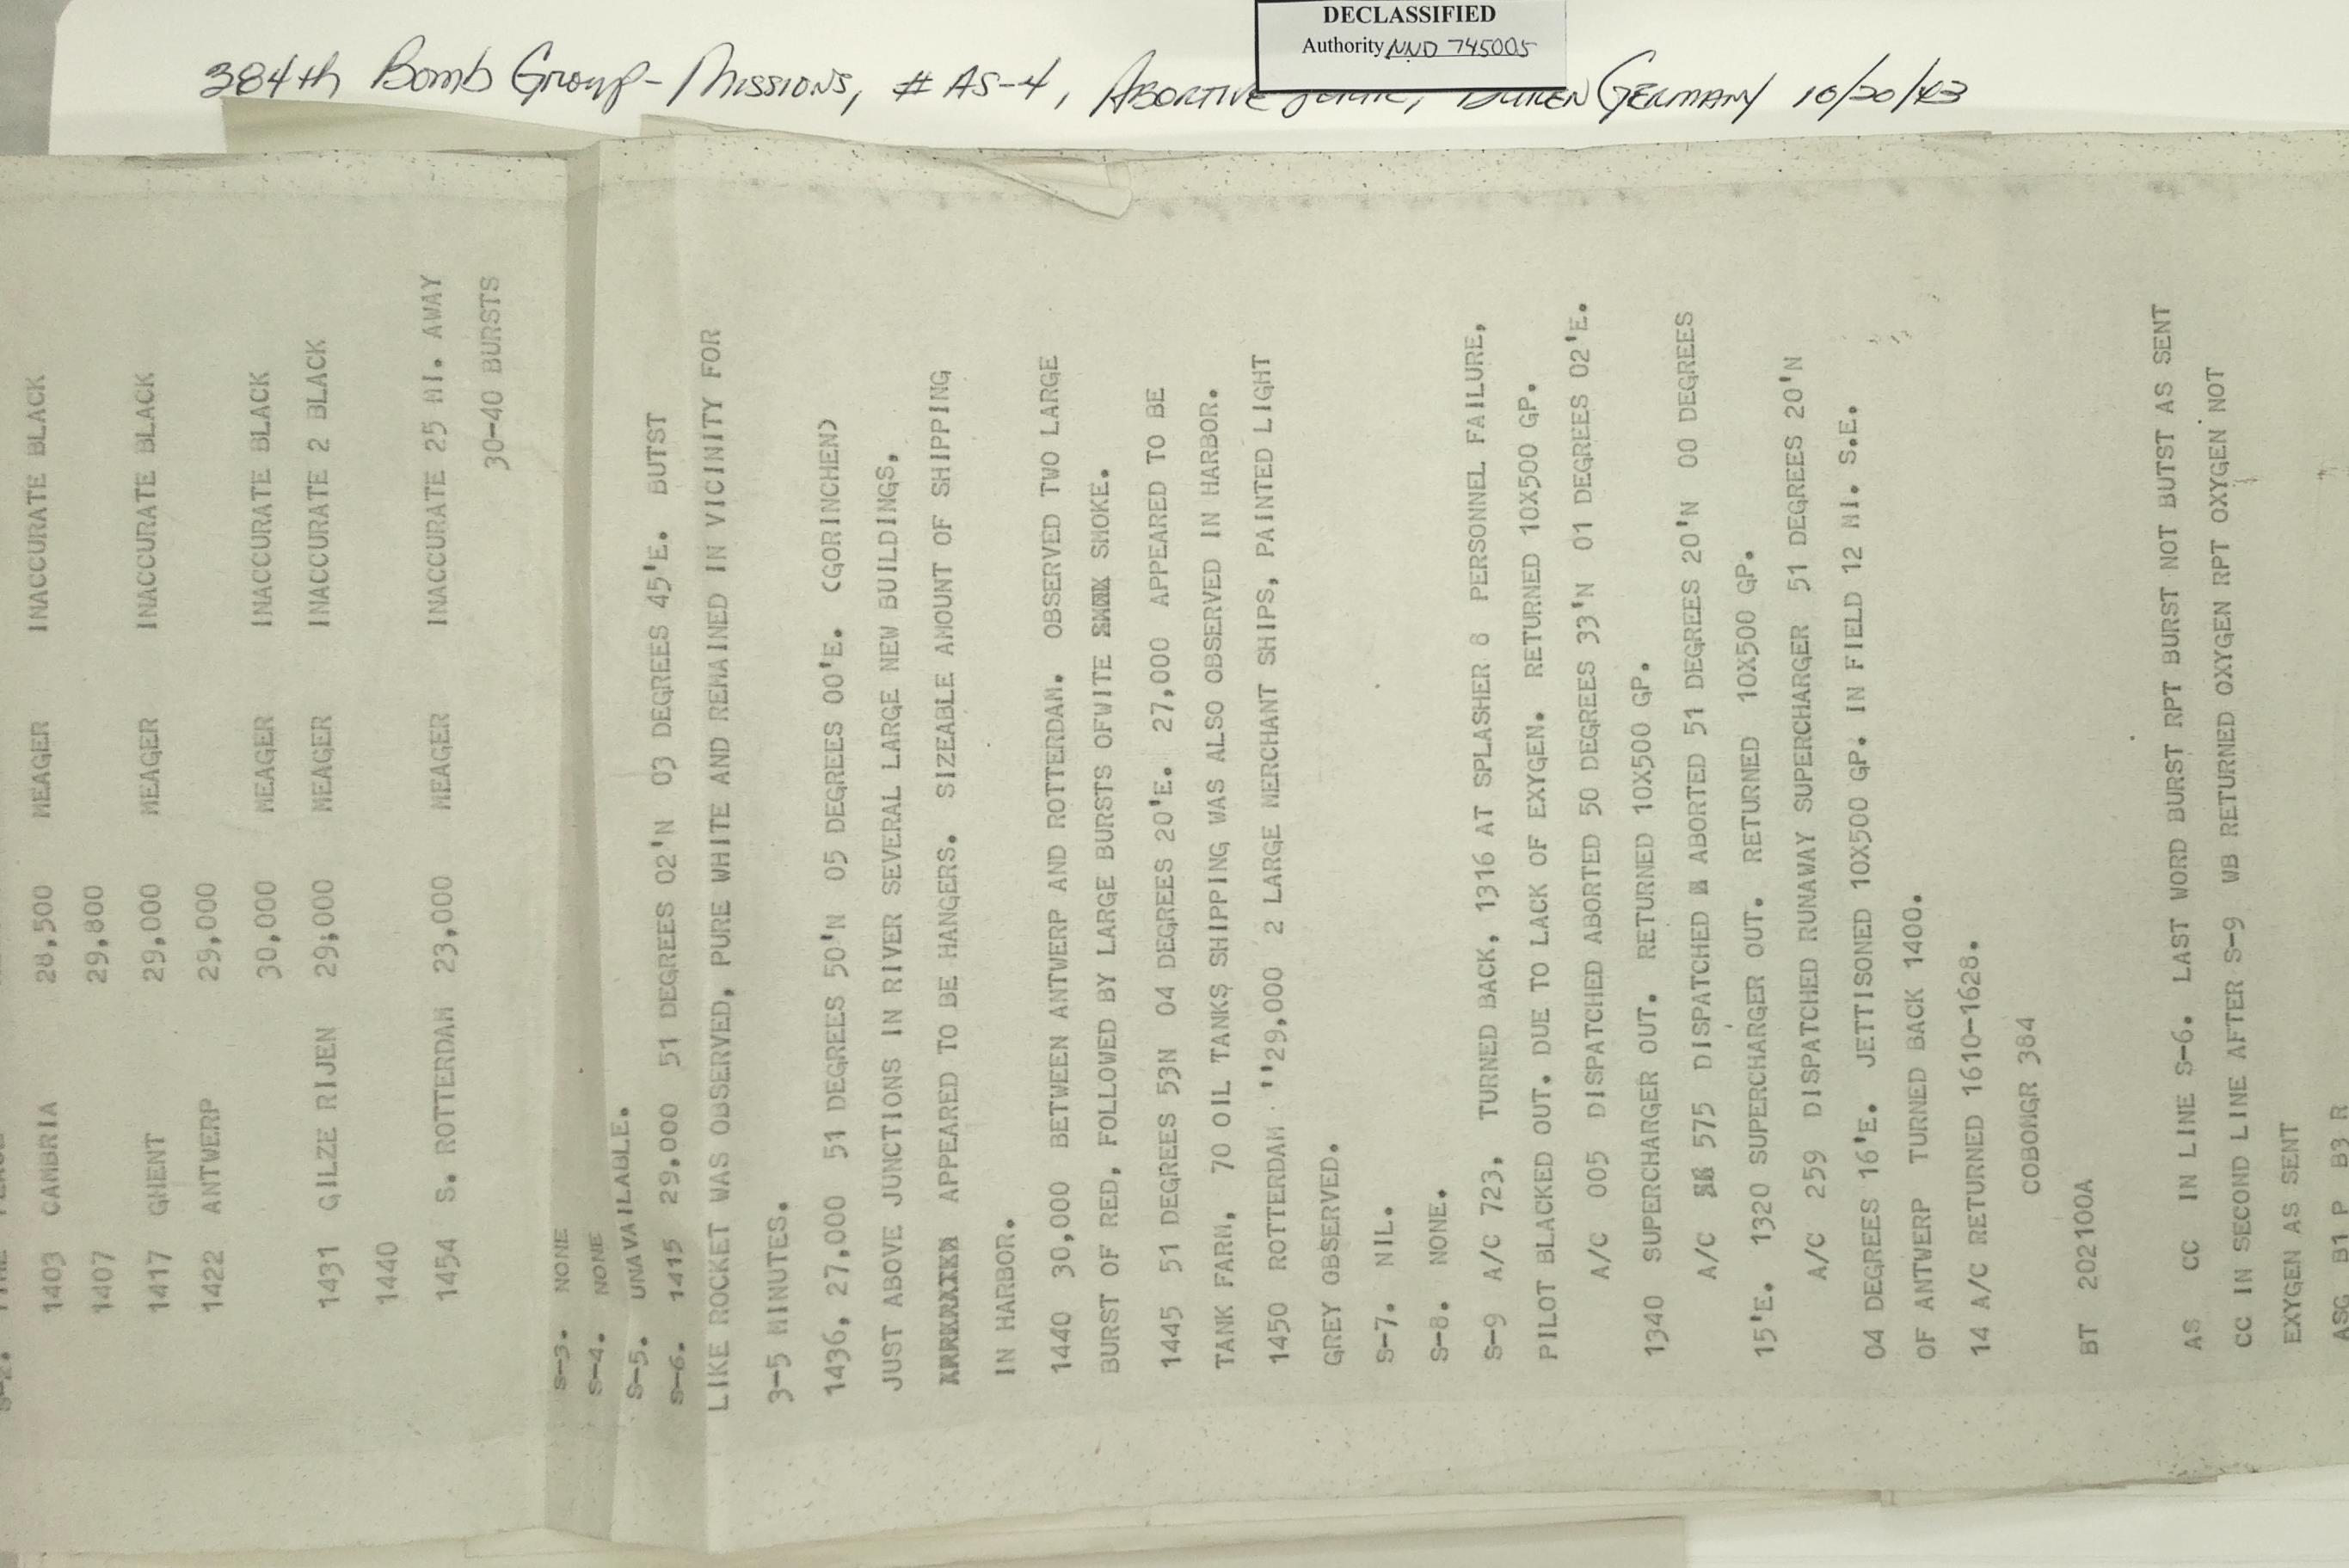 DECLASSIFIED
Authority NND 745005
384th Bomb Group - Missions, # AS-4, Abortive Germany 10/20/43
S-2.
1403 CAMBRIA 28,500 MEAGER INACCURATE BLACK
1407 29,800
1417 GHENT 29,000 MEAGER INACCURATE BLACK
1422 ANTWERP 29,000
30,000 MEAGER INACCURATE BLACK
1431 GILZE RIJEN 29,000 MEAGER INACCURATE 2 BLACK
1440
1454 S. ROTTERDAM 23,000 MEAGER INACCURATE 25 MI. AWAY
30-40 BURSTS
S-3. NONE
S-4. NONE
S-5. UNAVAILABLE.
S-6. 1415 29,000 51 DEGREES 02'N 03 DEGREES 45'E. BUTST
LIKE ROCKET WAS OBSERVED, PURE WHITE AND REMAINED IN VICINITY FOR
3-5 MINUTES.
1436, 27,000 51 DEGREES 50'N 05 DEGREES 00'E. (GORINCHEN)
JUST ABOVE JUNCTIONS IN RIVER SEVERAL LARGE NEW BUILDINGS,
APPEARED TO BE HANGERS. SIZEABLE AMOUNT OF SHIPPING
IN HARBOR.
1440 30,000 BETWEEN ANTWERP AND ROTTERDAM. OBSERVED TWO LARGE
BURST OF RED, FOLLOWED BY LARGE BURSTS OFWITE SMOKE.
1445 51 DEGREES 53N 04 DEGREES 20'E. 27,000 APPEARED TO BE
TANK FARM, 70 OIL TANKS SHIPPING WAS ALSO OBSERVED IN HARBOR.
1450 ROTTERDAM ''29,000 2 LARGE MERCHANT SHIPS, PAINTED LIGHT
GREY OBSERVED.
S-7. NIL.
S-8. NONE.
S-9 A/C 723, TURNED BACK, 1316 AT SPLASHER 8 PERSONNEL FAILURE,
PILOT BLACKED OUT. DUE TO LACK OF EXYGEN. RETURNED 10X500 GP.
A/C 005 DISPATCHED ABORTED 50 DEGREES 33'N 01 DEGREES 02'E.
1340 SUPERCHARGER OUT. RETURNED 10X500 GP.
A/C 575 DISPATCHED ABORTED 51 DEGREES 20'N 00 DEGREES
15'E. 1320 SUPERCHARGER OUT. RETURNED 10X500 GP.
A/C 259 DISPATCHED RUNAWAY SUPERCHARGER 51 DEGREES 20'N
04 DEGREES 16'E. JETTISONED 10X500 GP. IN FIELD 12 MI. S.E.
OF ANTWERP TURNED BACK 1400.
14 A/C RETURNED 1610-1628.
COBOMGR 384
BT 202100A
AS CC IN LINE S-6. LAST WORD BURST RPT BURST NOT BUTST AS SENT
CC IN SECOND LINE AFTER S-9 WB RETURNED OXYGEN RPT OXYGEN NOT
EXYGEN AS SENT
ASG B1 P B3 R